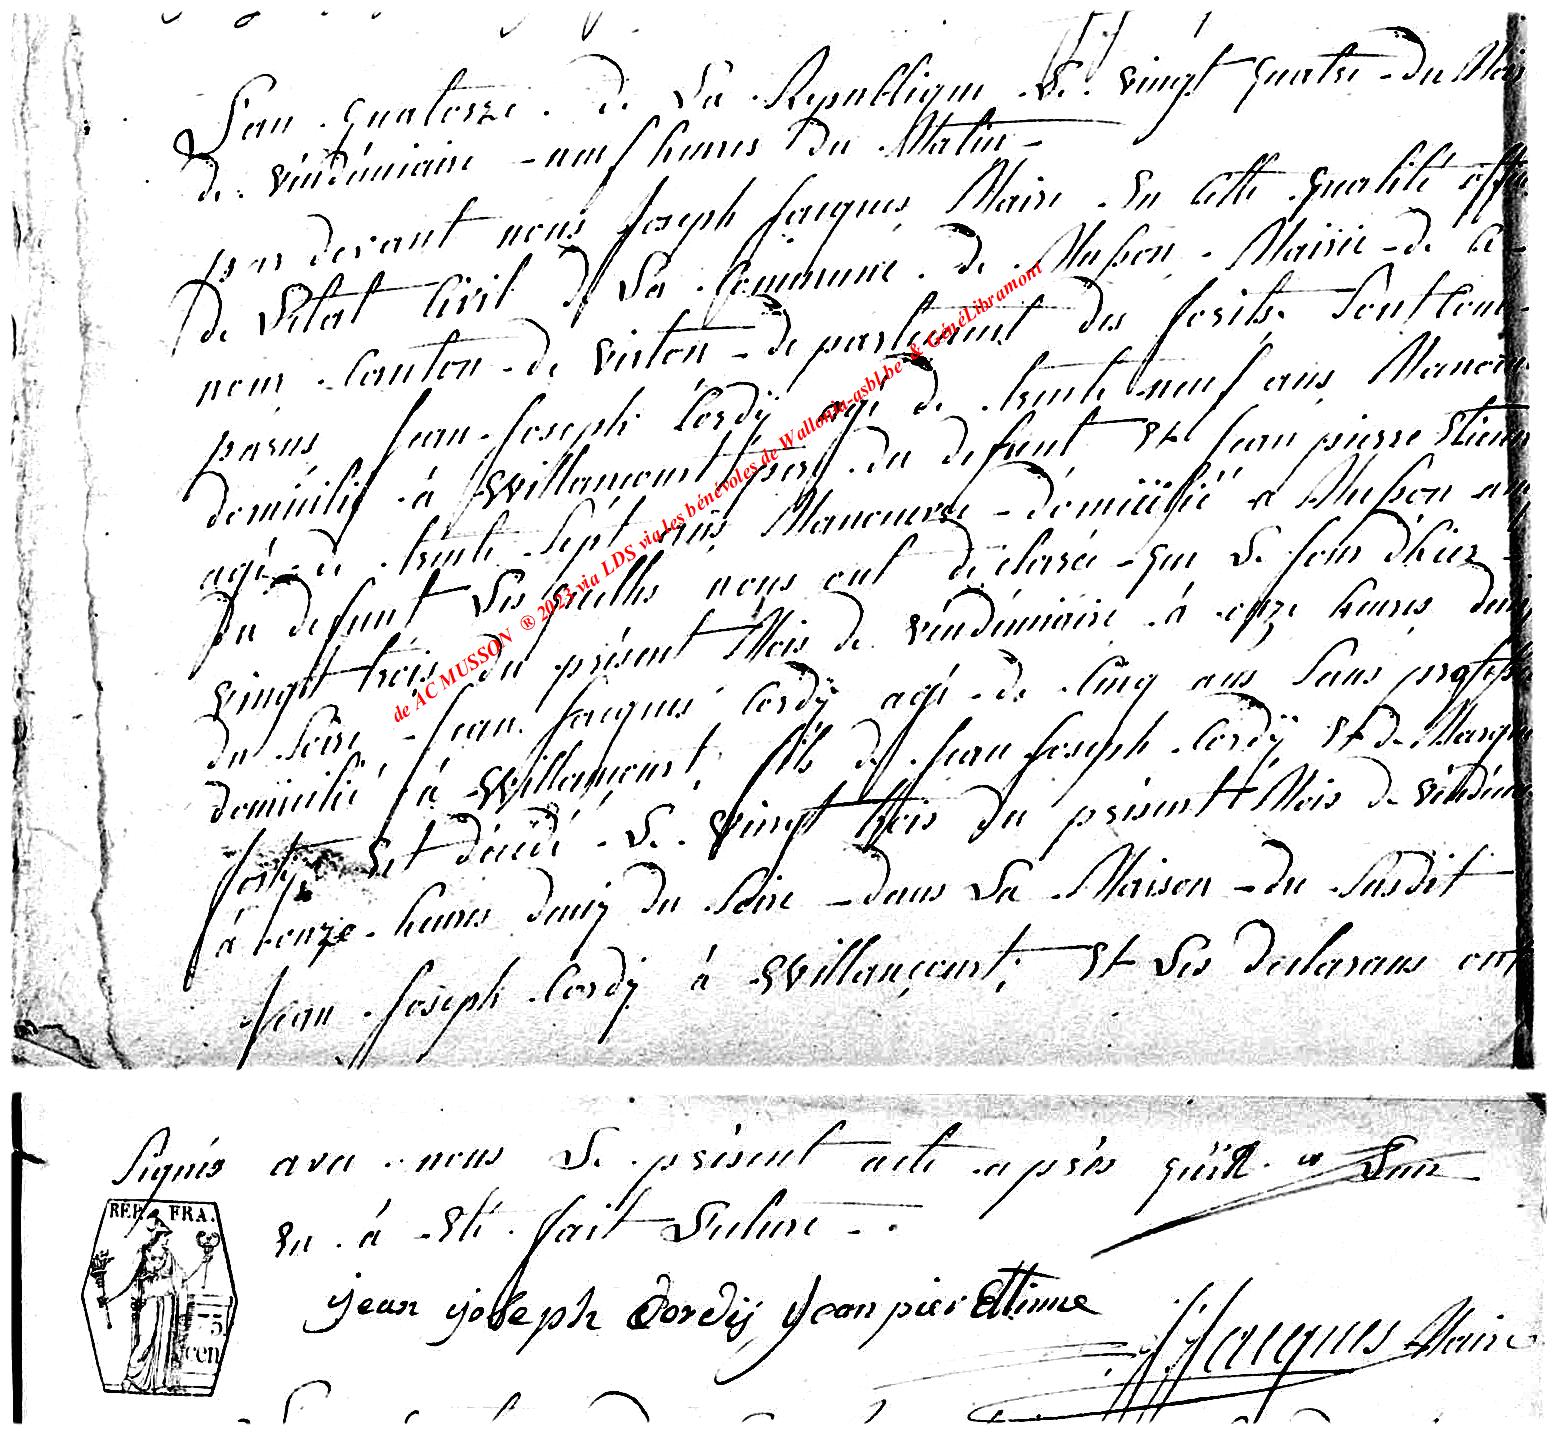 L'an quatorze de La Republique Le vingt quatre du Mois
de vindémiaire neuf heures du Matin
par devant nous Joseph Jacques Maire En Cette qualité offic
de L'Etat Civil de La Commune de Musson Mairie de Ce
nom Canton de virton departement des forêts Sont Com
parus Jean Joseph Cordÿ agé de trente neuf ans Manoeuv
domicilié à Willancourt pere du defunt Et Jean pierre Etienne
agé de trente Sept ans Manoeuvre domicilié a Musson ami
Du defunt Les quelles nous ont déclaré que Le Jour d'hier
vingt trois du présent Mois de vindémiaire à onze heures demi
du Soire Jean Jacques Cordÿ agé de Cinq ans Sans profess
domicilié à Willancourt, fils de Jean Joseph Cordÿ Et de Margue
Est décédé Le vingt trois du présent Mois de vindémi
à onze heures demy du Soire dans La Maison du Susdit
Jean Joseph Cordÿ à Willancourt; Et Les declarans ont
Signés avec nous Le présent acte après qu'il a Leur
En à Eté fait Lecture
jean joseph Cordij Jean pier Etienne
JJacques Maire
REP. FRA.
75
cen
de AC MUSSON ® 2023 via LDS via les bénévoles de Wallonia-asbl.be & GénéLibramont